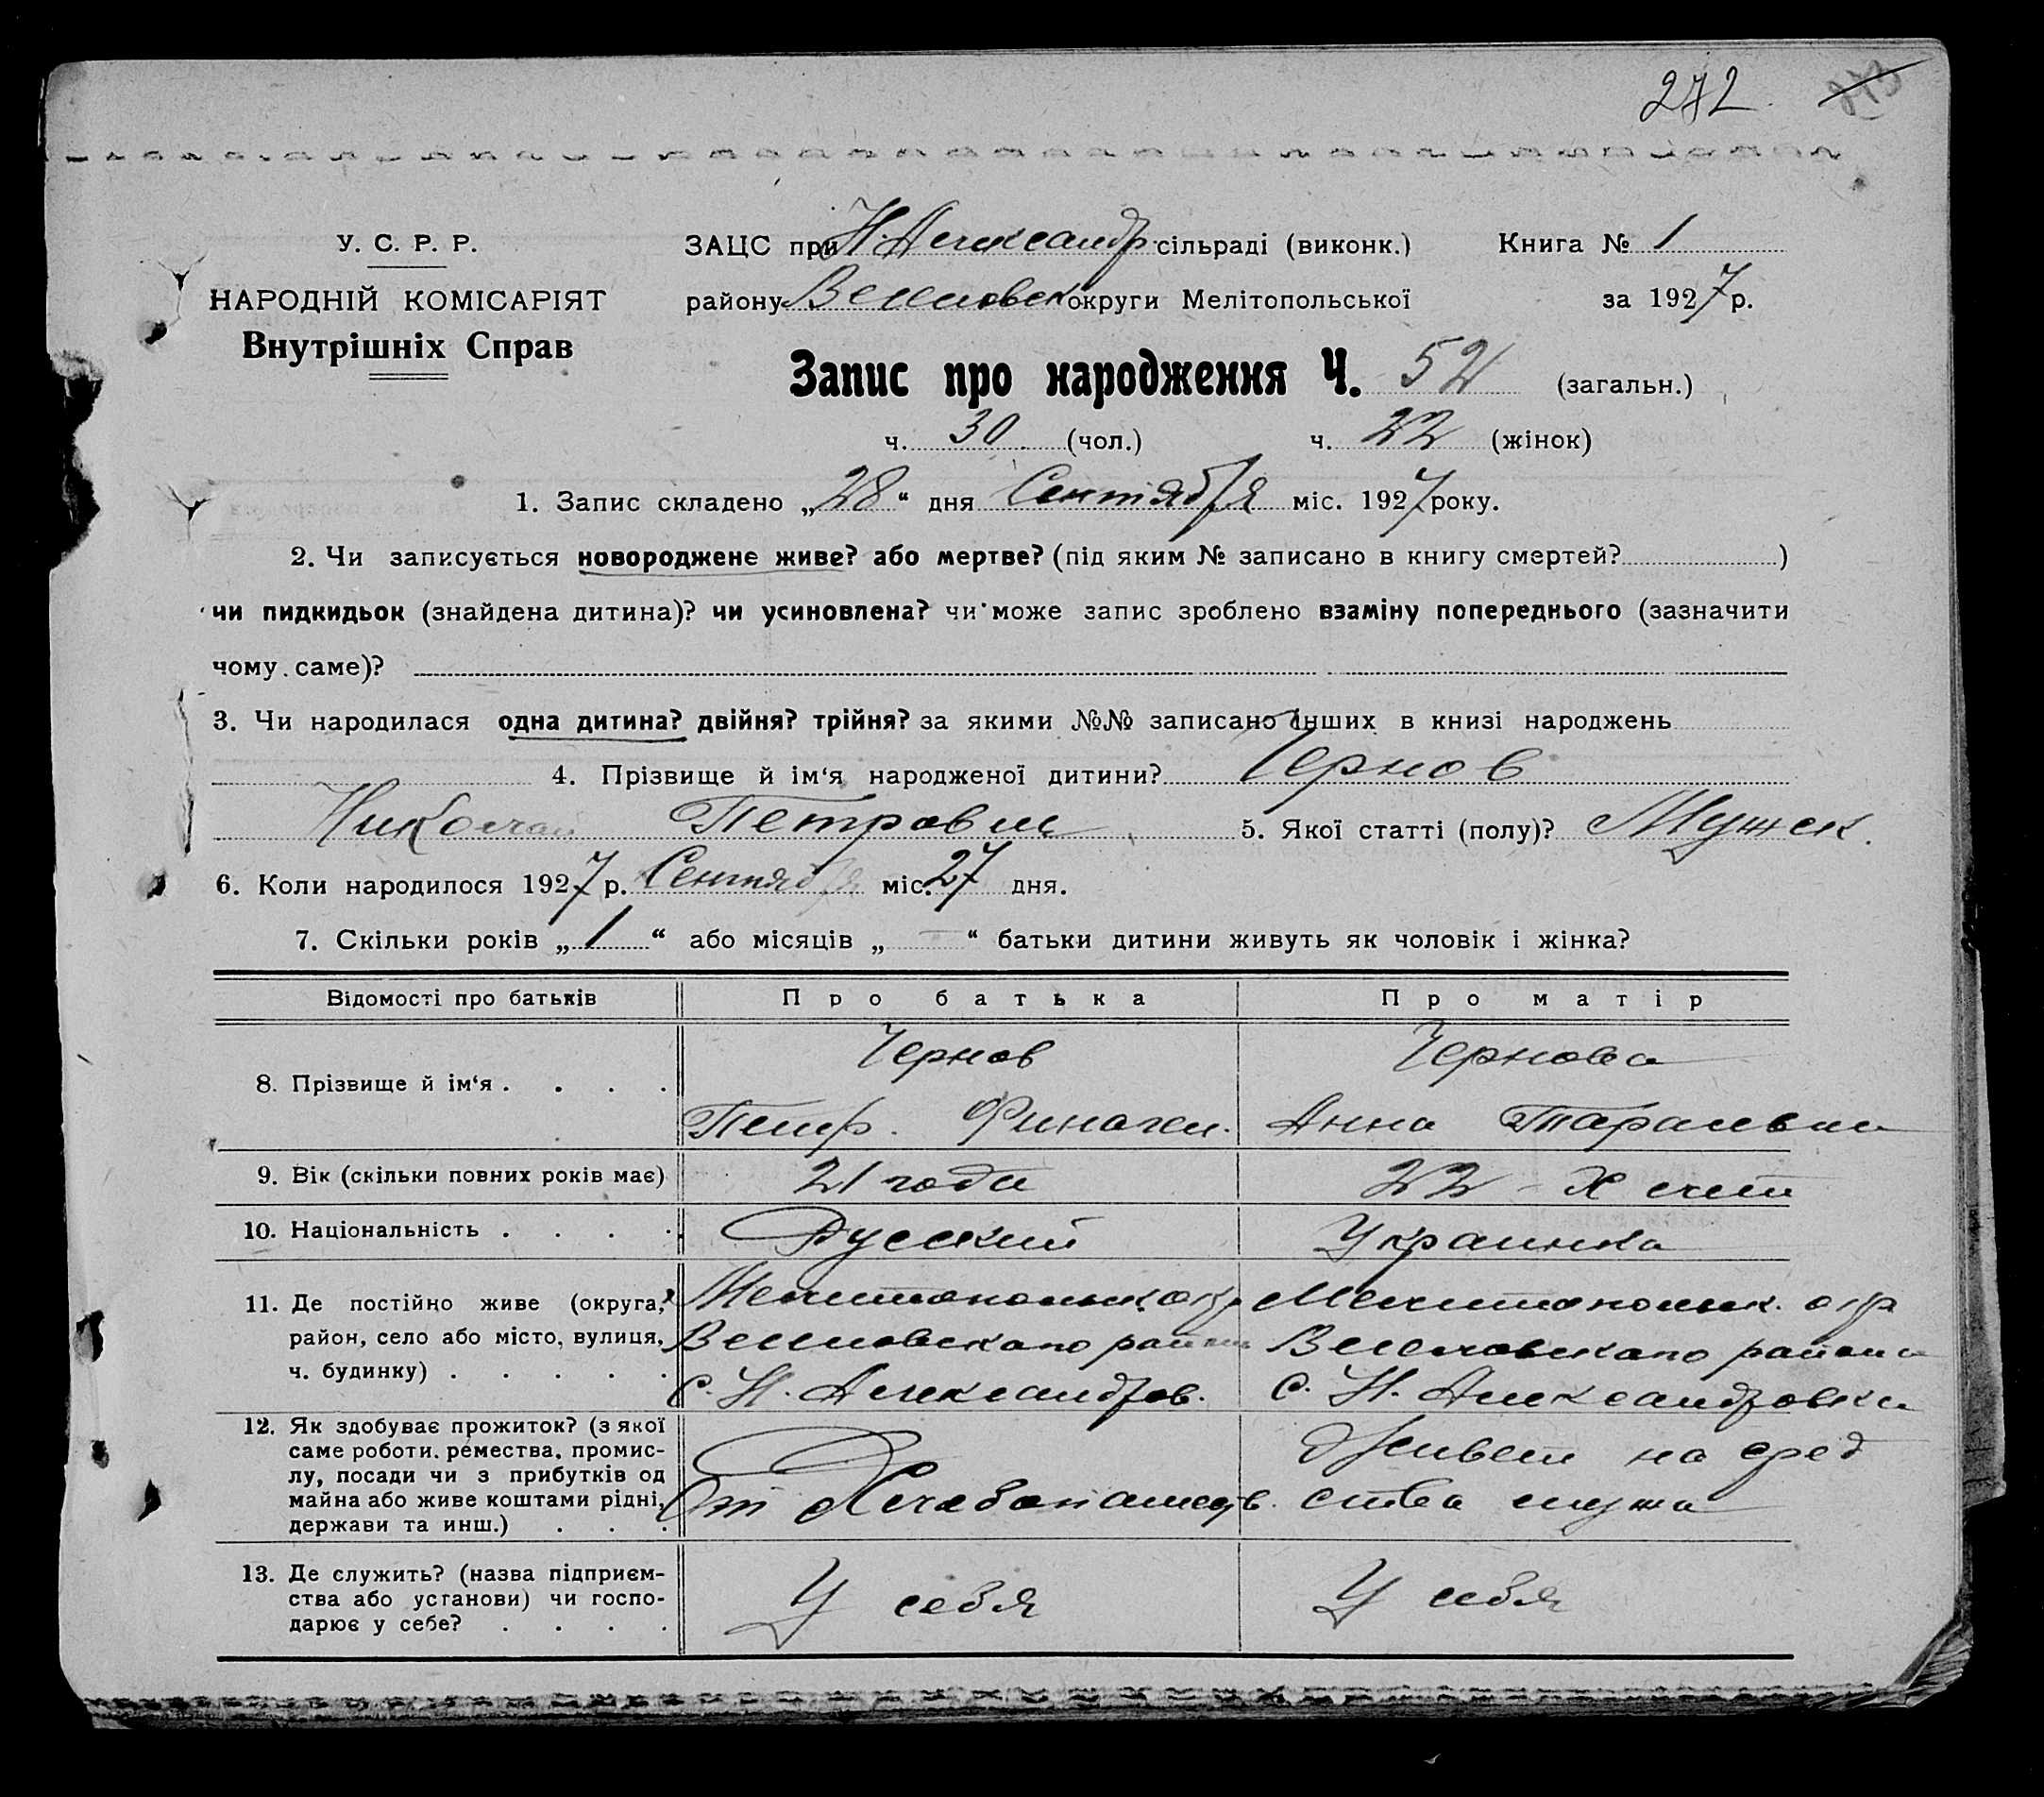 272. 273
У. С. Р. Р.
НАРОДНІЙ КОМІСАРІЯТ
Внутрішніх Справ
ЗАЦС при Н. Александр. сільраді (виконк.) Книга № 1
району Веселовск округи Мелітопольської за 1927 р.
Запис про народження Ч. 52 (загальн.)
ч. 30 (чол.) ч. 22 (жінок)
1. Запис складено „28“ дня Сентября міс. 1927 року.
2. Чи записується новороджене живе? або мертве? (під яким № записано в книгу смертей? )
чи пидкидьок (знайдена дитина)? чи усиновлена? чи може запис зроблено взаміну попереднього (зазначити
чому саме)?
3. Чи народилася одна дитина? двійня? трійня? за якими №№ записано інших в книзі народжень
4. Прізвище й ім‘я народженої дитини? Чернов
Николай Петрович 5. Якої статті (полу)? Мужск.
6. Коли народилося 1927 р. Сентября міс. 27 дня.
7. Скільки років „1“ або місяців „-“ батьки дитини живуть як чоловік і жінка?
Відомості про батьків Про батька Про матір
8. Прізвище й ім‘я . . . .
Чернов
Петр.
Чернова
Анна
9. Вік (скільки повних років має) 21 года 22-х лет
10. Національність . . . . Русский Украинка
11. Де постійно живе (округа,
район, село або місто, вулиця,
ч. будинку) . . . . .
Мелитопольск. окр
Веселовского района
с. Н. Александров.
Мелитопольск. окр
Веселовского района
с. Н. Александровка
12. Як здобуває прожиток? (з якої
саме роботи, ремества, промис-
лу, посади чи з прибутків од
майна або живе коштами рідні,
держави та инш.) . . .
От Хлебопашеств.
Живет на сред
ства мужа
13. Де служить? (назва підприєм-
ства або установи) чи госпо-
дарює у себе? . . . .
У себя
У себя